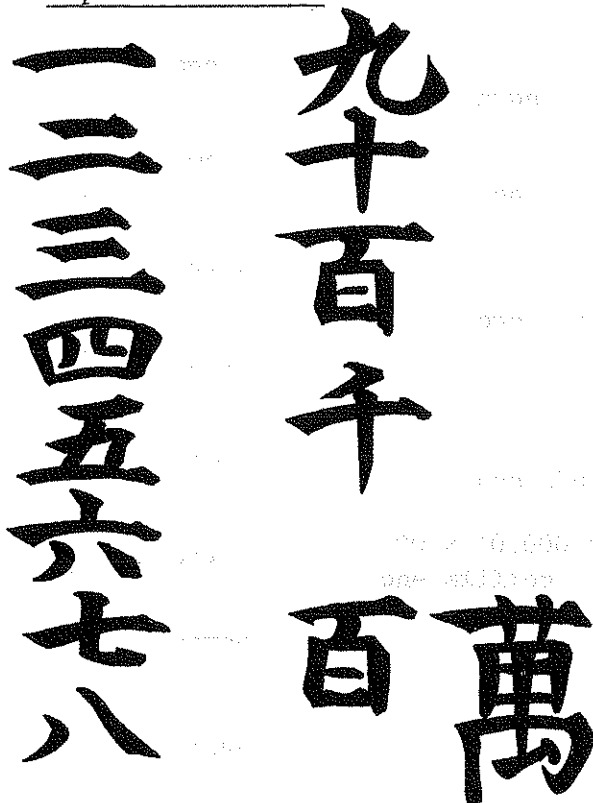 一
二
三
四
五
六
七
八
九
十
百
千
百萬